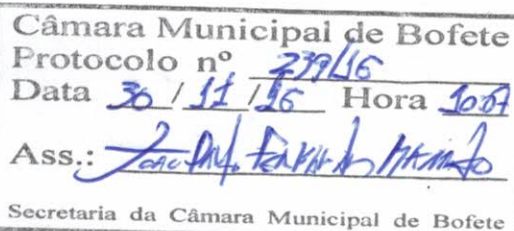 Câmara Municipal de Bofete
Protocolo nº 239/16
Data 30 / 11 / 16 Hora 10:07
Ass.:
Secretaria da Câmara Municipal de Bofete